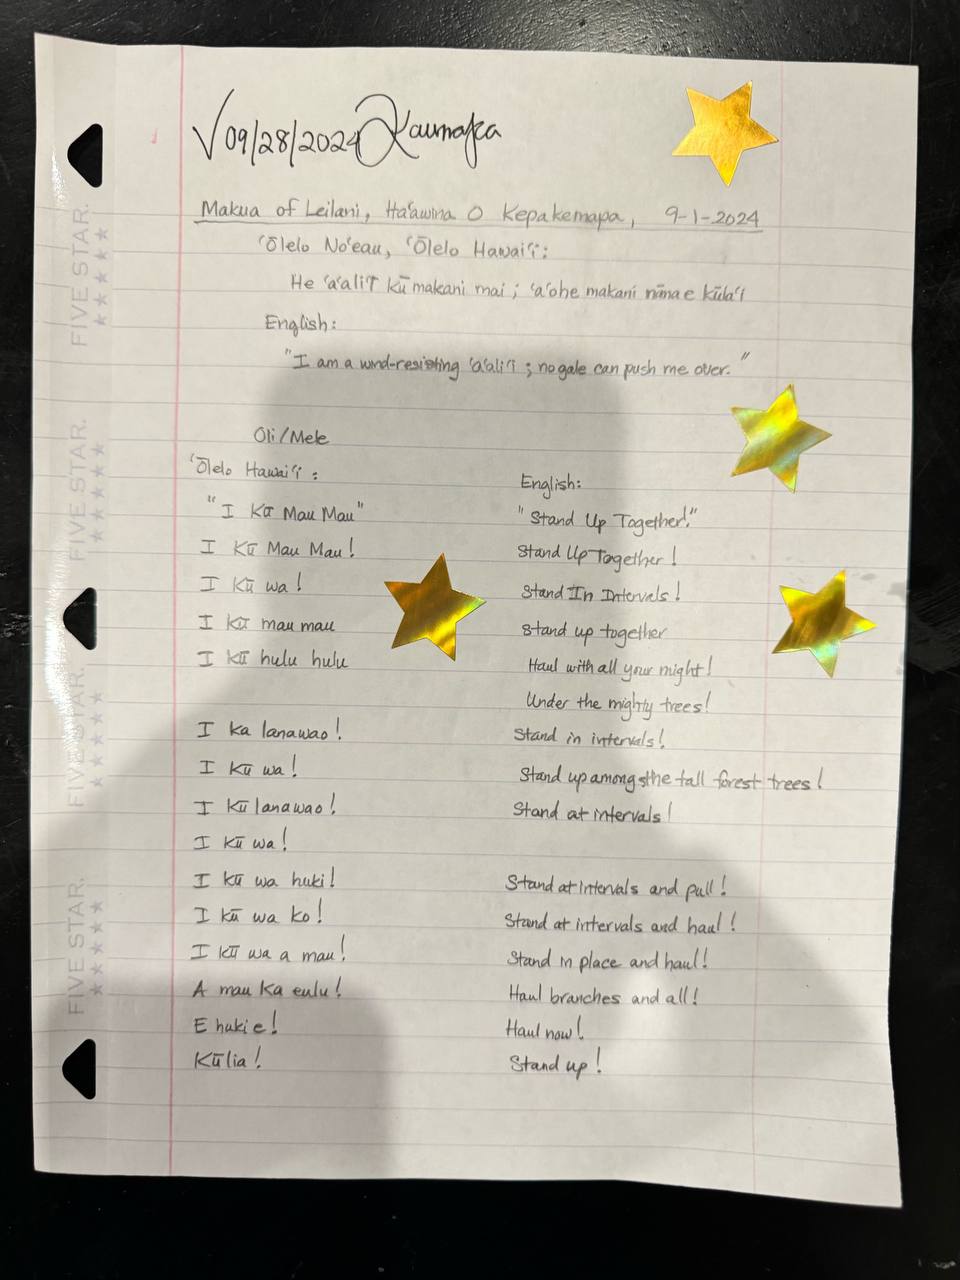 √09/28/2024 Kaumaka
Makua of Leilani, Ha'awina O Kepakemapa, 9-1-2024
'Ōlelo No'eau, 'Ōlelo Hawai'i:
He 'a'ali'i kū makani mai ; 'a'ohe makani nāna e kūla'i
English:
"I am a wind-resisting 'a'ali'i ; no gale can push me over."
Oli/Mele
'Ōlelo Hawai'i :
English:
"I Kū Mau Mau"
"Stand Up Together!"
I Kū Mau Mau!
Stand Up Together!
I Kū wa!
Stand In Intervals!
I Kū mau mau
Stand up together
I Kū hulu hulu
Haul with all your might!
Under the mighty trees!
I Ka lanawao!
Stand in intervals!
I Kū wa!
Stand up amongst the tall forest trees!
I Kū lanawao!
Stand at intervals!
I Kū wa!
I Kū wa huki!
Stand at intervals and pull!
I Kū wa ko!
Stand at intervals and haul!
I Kū wa a mau!
Stand in place and haul!
A mau Ka eulu!
Haul branches and all!
E huki e!
Haul now!
Kūlia!
Stand up!
FIVE STAR.
FIVE STAR.
FIVE STAR.
FIVE STAR.